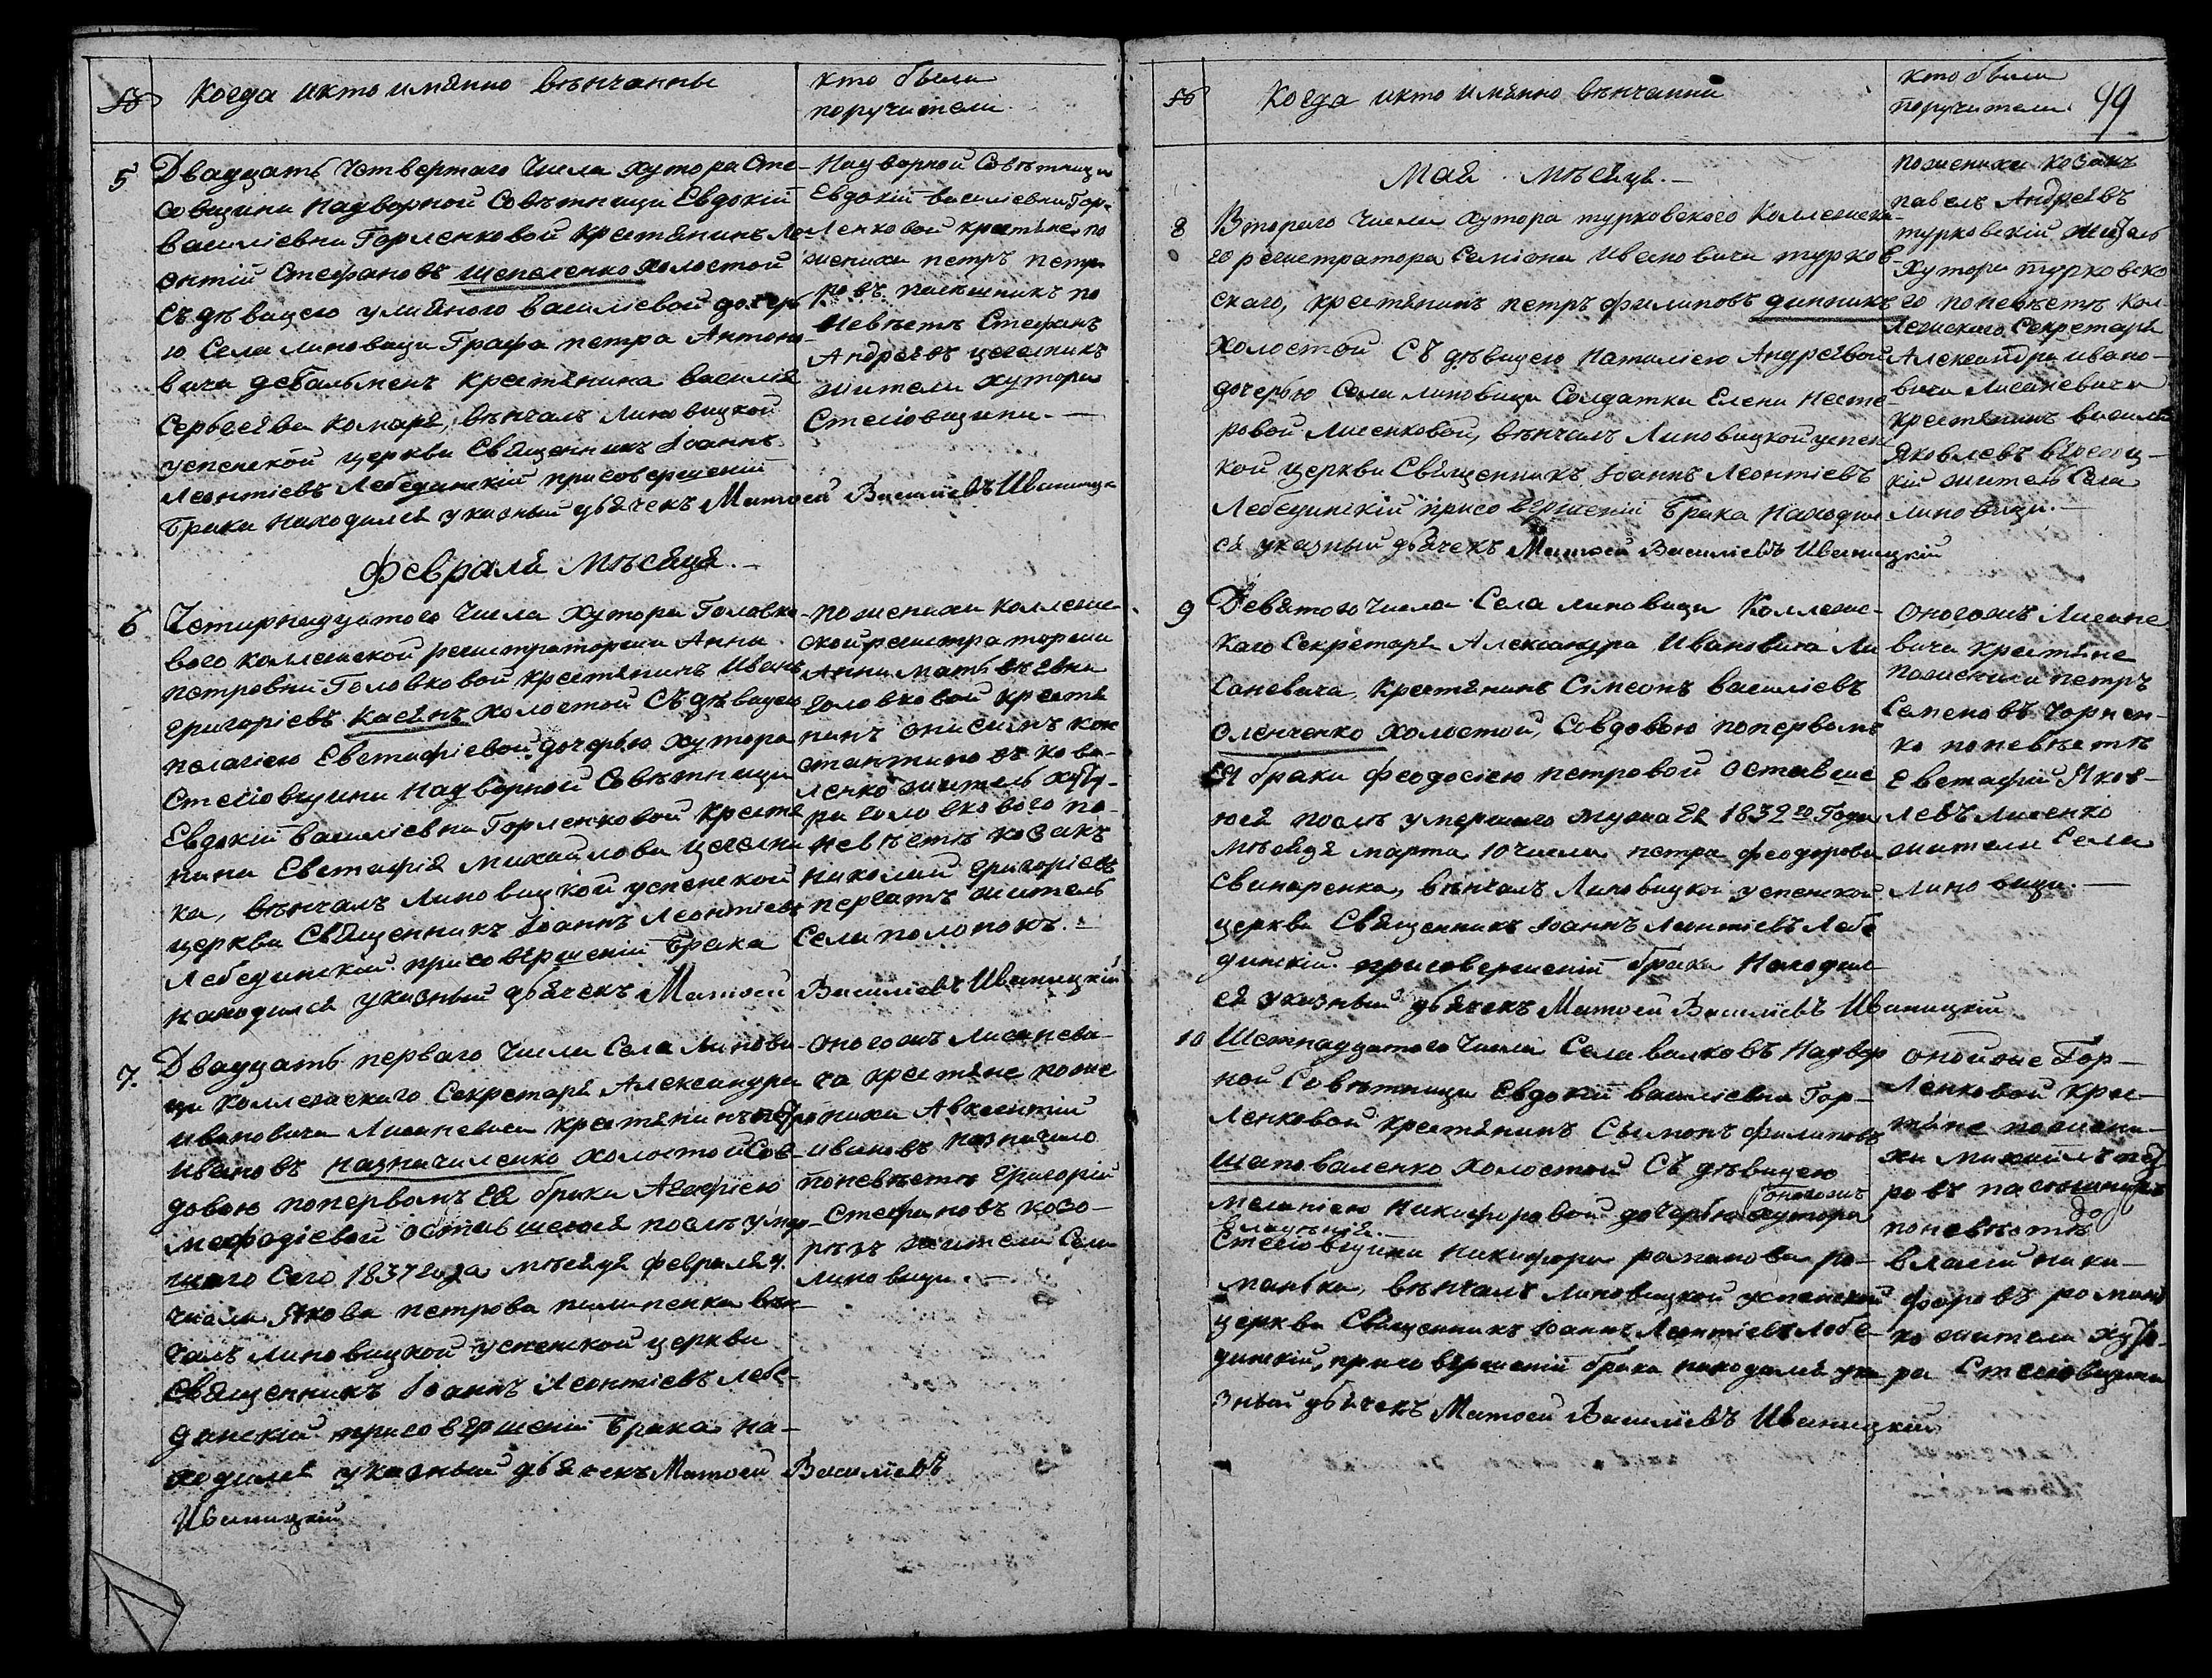 № Когда и кто имянно вѣнчанны
кто были
поручители
5 Двадцать четвертаго числа хутора Сте-
совщини Надворной Совѣтници Евдокіи
Василіевни Горленковой крестянинъ Ле-
онтій Стефановъ Щепеленко холостой
съ дѣвицею Василіевой дочер
ю Села Линовици Графа Петра Антоно
вича Дебальменъ крестянина Василія
Сергеева Комаря, вѣнчалъ Линовицкой
Успенской церкви Священникъ Іоаннъ
Леонтіевъ Лебединскій присовершеніи
Брака находился указный дьячекъ Матѳей Василіевъ Иваницкій
Надворной Совѣтници
Евдокіи Василіевни Гор-
Ленковой крестяне по
женихи Петръ Петро
ровъ пасѣшникъ по
Невѣсте Стефанъ
Андреевъ
жители хутора
Стесіовщини.
Февраля мѣсяця.
6 Четирнадцатого числа хутора Головко
вого Коллежской регистраторши Анны
Петровни Головковой крестянинъ Иванъ
Григоріевъ Касянъ холостой Съ дѣвицею
Пелагіею Евстафіевой дочерью хутора
Стесіовщини Надворной Совѣтници
Евдокіи Василіевни Горленковой Крестя
нина Евстафія Михайлова
ка, вѣнчалъ Линовицкой Успенской
церкви Священникъ Іоаннъ Леонтіевъ
Лебединскій присовершеніи Брака
находился указный дьячекъ Матѳей Василіевъ Иваницкій
по женихи Коллеж
ской регистраторши
Анни Матвѣевни
Головковой крестя
нинъ Онисимъ Кон
стантиновъ Кова-
ленко житель хуто-
ра Головкового по
невѣсте козакъ
Николай Григоріевъ
житель
Села Полопокъ.
7. Двадцать перваго числа Села Линови
ци Коллежскаго Секретаря Александра
Ивановича Лисаневича крестянинъ
Ивановъ Назначиленко холостой Сов-
довою попервомъ Ея браки Агафіею
Мефодіевой оставшеюся послѣ умер
шаго Сего 1837 года мѣсяця февраля 4.
числа Якова Петрова Пилипенка вѣн-
чалъ Линовицкой Успенской церкви
Священникъ Іоаннъ Леонтіевъ Лебе-
динскій присовершеніи Брака на-
ходился указный дьячекъ Матѳей Василіевъ
Иваницкій
Оногожъ Лисанева
ча крестяне по же
нихи Авксентій
Ивановъ Назначило
по невѣсте Григорій
Стефановъ Козо-
резъ жители Села
Линовици.
№ Когда и кто имянно вѣнчанни
кто были
поручители 49
Май мѣсяця.
8 Второго числа хутора Турковского Коллежска-
го регистратора Семіона Ивановича Турков
скаго, крестянинъ Петръ Филиповъ Динникъ
холостой Съ дѣвицею Наталіею Андреевой
дочерью Села Линовици Солдатки Елени Несте
ровой Лисенковой, вѣнчалъ Линовицкой Успен
кой церкви Священникъ Іоаннъ Леонтіевъ
Лебединскій присовершеніи Брака находил
ся указный дьячекъ Матѳей Василіевъ Иваницкій
По женихи козакъ
Павелъ Андреевъ
Турковскій житель
хутора Турковско
го по невѣсте Кол
лежского Секретаря
Александра Ивано-
вича Лисаневича
крестянинъ Василій
Яковлевъ
кій житель Села
Линовици.
9 Девятого числа Села Линовици Коллежс-
каго Секретаря Александра Ивановича Ли
саневича, крестянинъ Сімеонъ Василіевъ
Оленченко холостой, Совдовою попервомъ
Ея браки Феодосіею Петровой оставше
юся послѣ умершаго мужа Ея 1832го Года
мѣсяця марта 10 числа Петра Феодорова
Свинаренка, вѣнчалъ Линовицкой Успенской
церкви Священникъ Іоаннъ Леонтіевъ Лебе
динскій присовершеніи брака Находил-
ся указный дьячекъ Матѳей Василіевъ Иваницкій
Оногожъ Лисане
вича крестяне
по женихи Петръ
Семеновъ Чорнен-
ко по невѣсте
Евстафій Яков-
левъ Лисенко
жители Села
Линовици.
10 Шестнадцатого числа Села Валковъ Надвор
ной Совѣтници Евдокіи Василіевни Гор-
ленковой крестянинъ Сымонъ Филиповъ
Шаповаленко холостой Съ дѣвицею
Меланіею Никифоровой дочерью оногожъ хутора
владѣнія.
Стесіовщини Никифора Романова Ро-
манька, вѣнчалъ Линовицкой Успенской
церкви Священникъ Іоаннъ Леонтіевъ Лебе-
динскій, присовершеніи брака находился ука
зный дьячекъ Матѳей Василіевъ Иваницкій
Онойже Гор-
Ленковой крес-
тяне по жени-
хи Михаилъ
ровъ
по невѣсте
Власій Ники-
форовъ Романь
ко жители хуто-
ра Стесіовщини